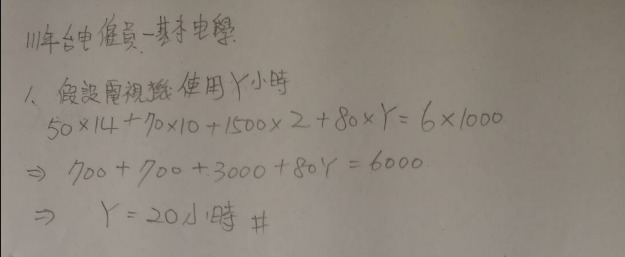 111年台电僱員-基本电學
1、假設電視機使用Y小時
50×14+70×10+1500×2+80×Y=6×1000
⇒ 700+700+3000+80Y=6000
⇒ Y=20小時 #